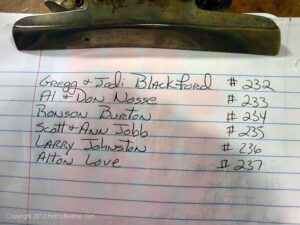 Gregg & Jodi Blackford # 232
Al & Don Nosse # 233
Ronson Burton # 234
Scott & Ann Jobb # 235
Larry Johnston # 236
Alton Love # 237
Copyright 2012